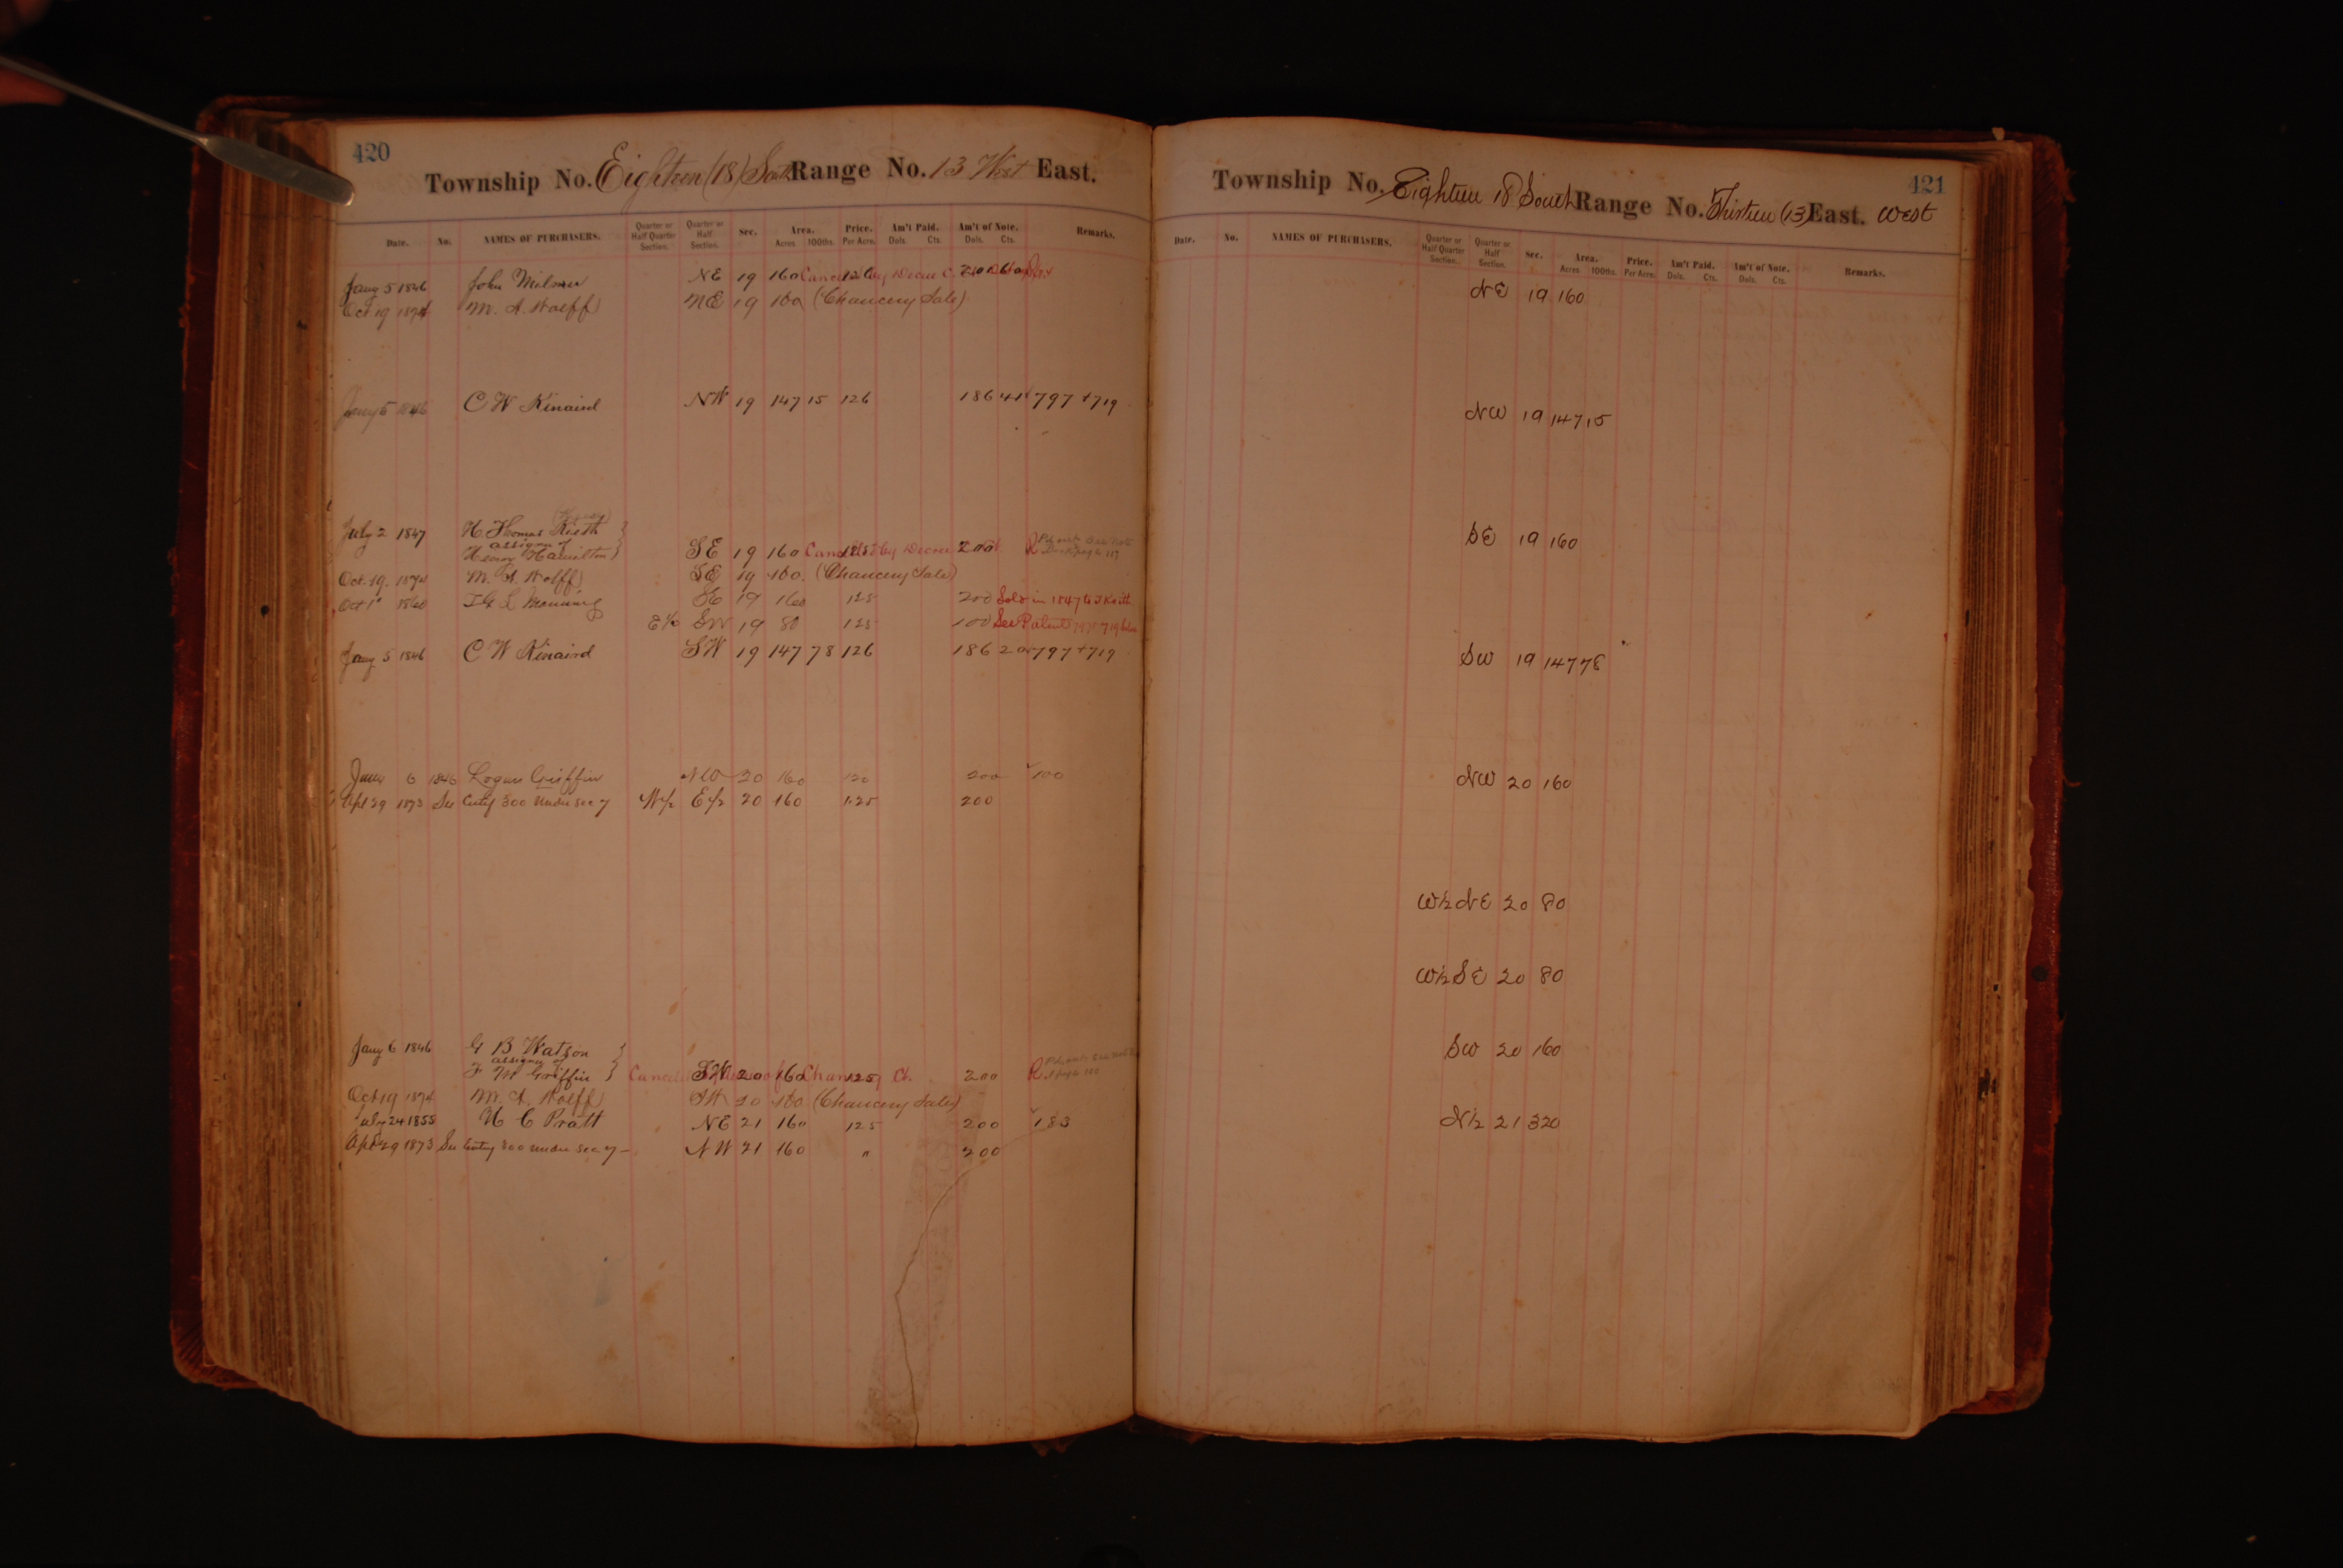 420
Township No. Eighteen (18) South Range No. 13 West East.
Date. No. NAMES OF PURCHASERS. Quarter or Half Quarter Section. Quarter or Half Section. Sec. Area. Acres 100ths. Price. Per Acre. Am't Paid. Dols. Cts. Am't of Note. Dols. Cts. Remarks.
Jany 5 1846 John Milner NE 19 160 126
Oct 19 1874 M. A. Wolff NE 19 160 (Chancery Sale)
Jany 5 1846 C W Kinaird NW 19 147 15 126 186 41 797 + 719
July 2 1847 H. Thomas Kieth
assignee of
Henry Hamilton SE 19 160 Cancelled by Decree 125 200 R
Oct. 19. 1874 M. A. Wolff SE 19 160. (Chancery Sale)
Oct 1 1860 Manning SE 19 160 125 200 Sold in 1847 to T Keith
E½ SW 19 80 125 100 See Patent 797 + 719
Jany 5 1846 C W Kinaird SW 19 147 78 126 186 20 797 + 719
Jany 6 1846 Logan Griffin NW 20 160 120 200 100
Apl 29 1873 See Entry 300 under sec 7 W½ E½ 20 160 1.25 200
Jany 6 1846 G B Watson
assignee of
F M Griffin SW 20 160 Chancery Ct. 125 200 R
Oct 19 1874 M. A. Wolff SW 20 160 (Chancery Sale)
July 24 1855 H C Pratt NE 21 160 125 200 183
Apl 29 1873 See Entry 300 under sec 7 - NW 21 160 " 200
421
Township No. Eighteen 18 South Range No. Thirteen (13) East. West
Date. No. NAMES OF PURCHASERS. Quarter or Half Quarter Section. Quarter or Half Section. Sec. Area. Acres 100ths. Price. Per Acre. Am't Paid. Dols. Cts. Am't of Note. Dols. Cts. Remarks.
NE 19 160
NW 19 147 15
SE 19 160
SW 19 147 78
NW 20 160
W½ NE 20 80
W½ SE 20 80
SW 20 160
N½ 21 320